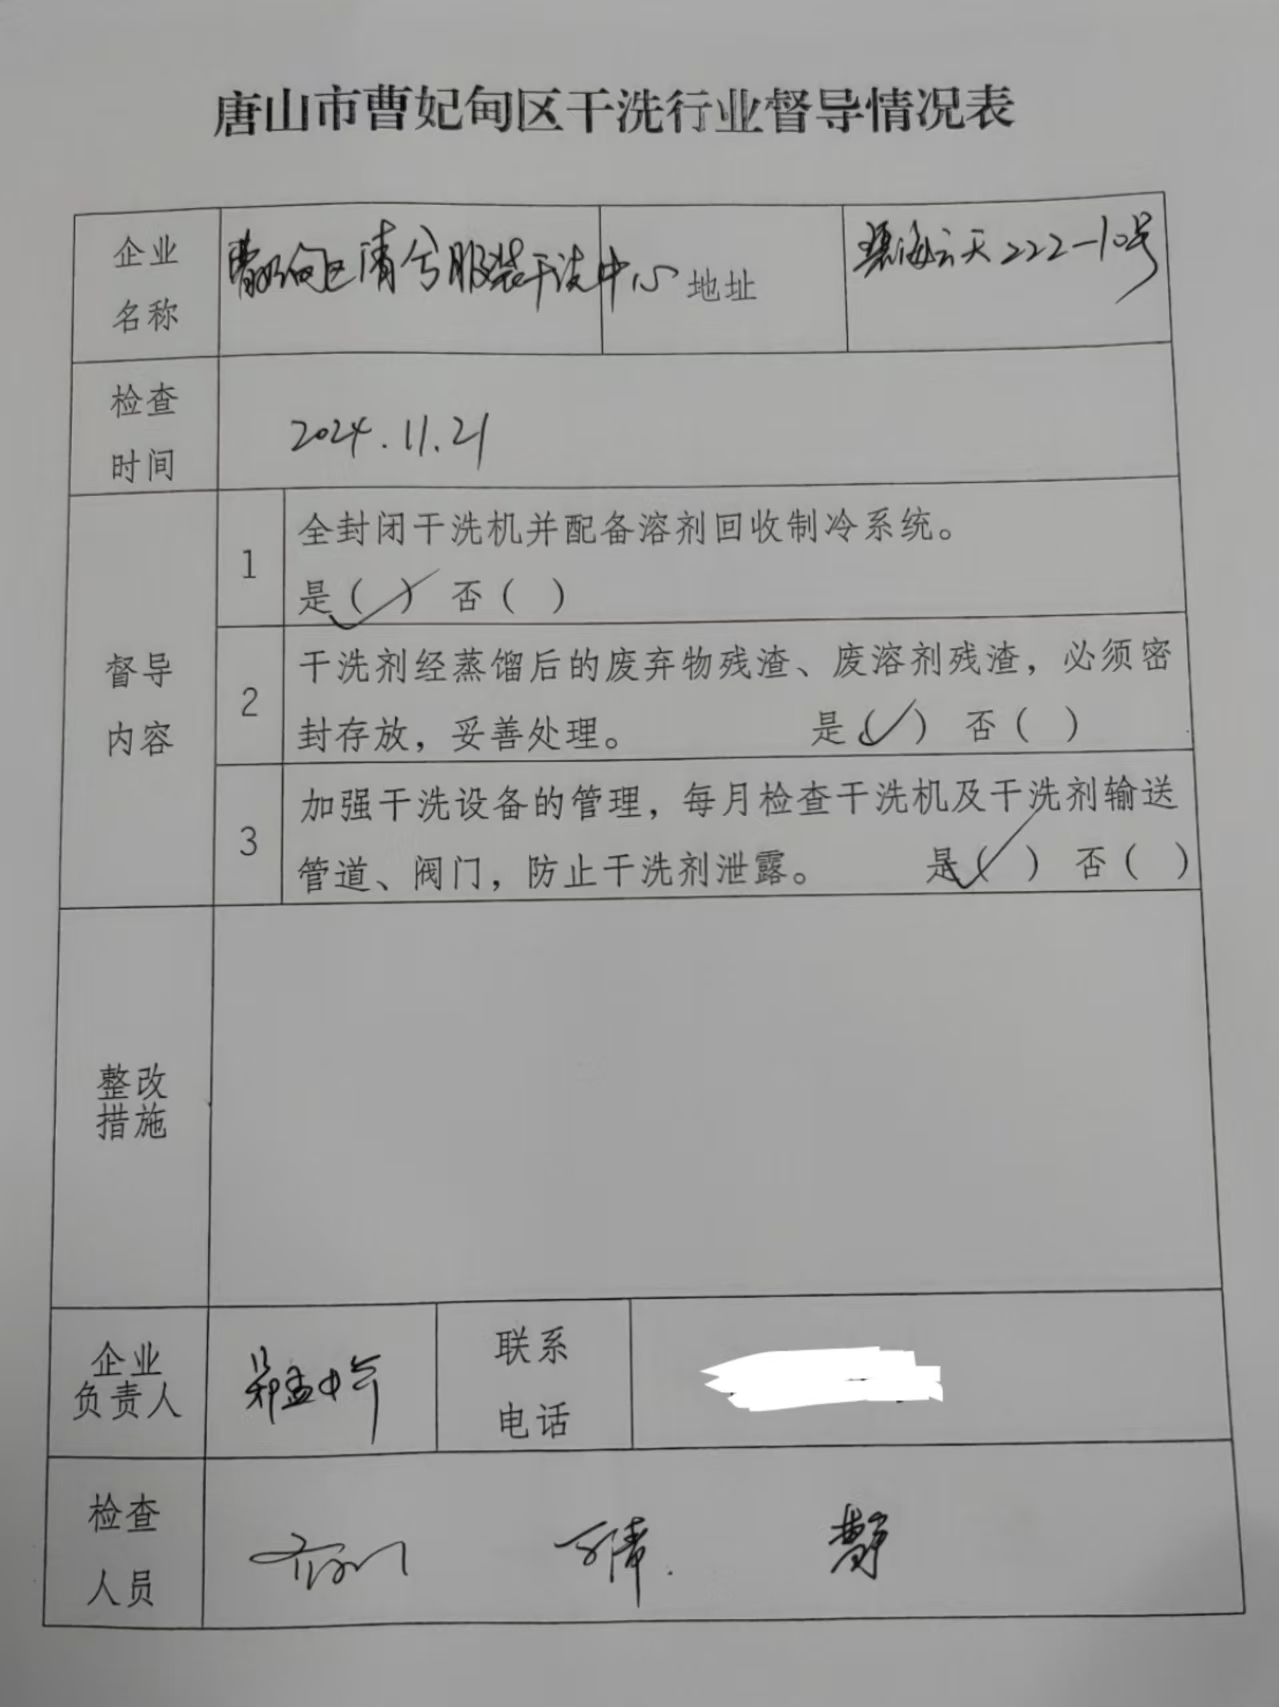 唐山市曹妃甸区干洗行业督导情况表
企业
名称
曹妃甸区清兮服装干洗中心
地址
碧海云天222-10号
检查
时间
2024.11.21
督导
内容
1
全封闭干洗机并配备溶剂回收制冷系统。
是(✓) 否( )
2
干洗剂经蒸馏后的废弃物残渣、废溶剂残渣，必须密
封存放，妥善处理。 是(✓) 否( )
3
加强干洗设备的管理，每月检查干洗机及干洗剂输送
管道、阀门，防止干洗剂泄露。 是(✓) 否( )
整改
措施
企业
负责人
联系
电话
检查
人员